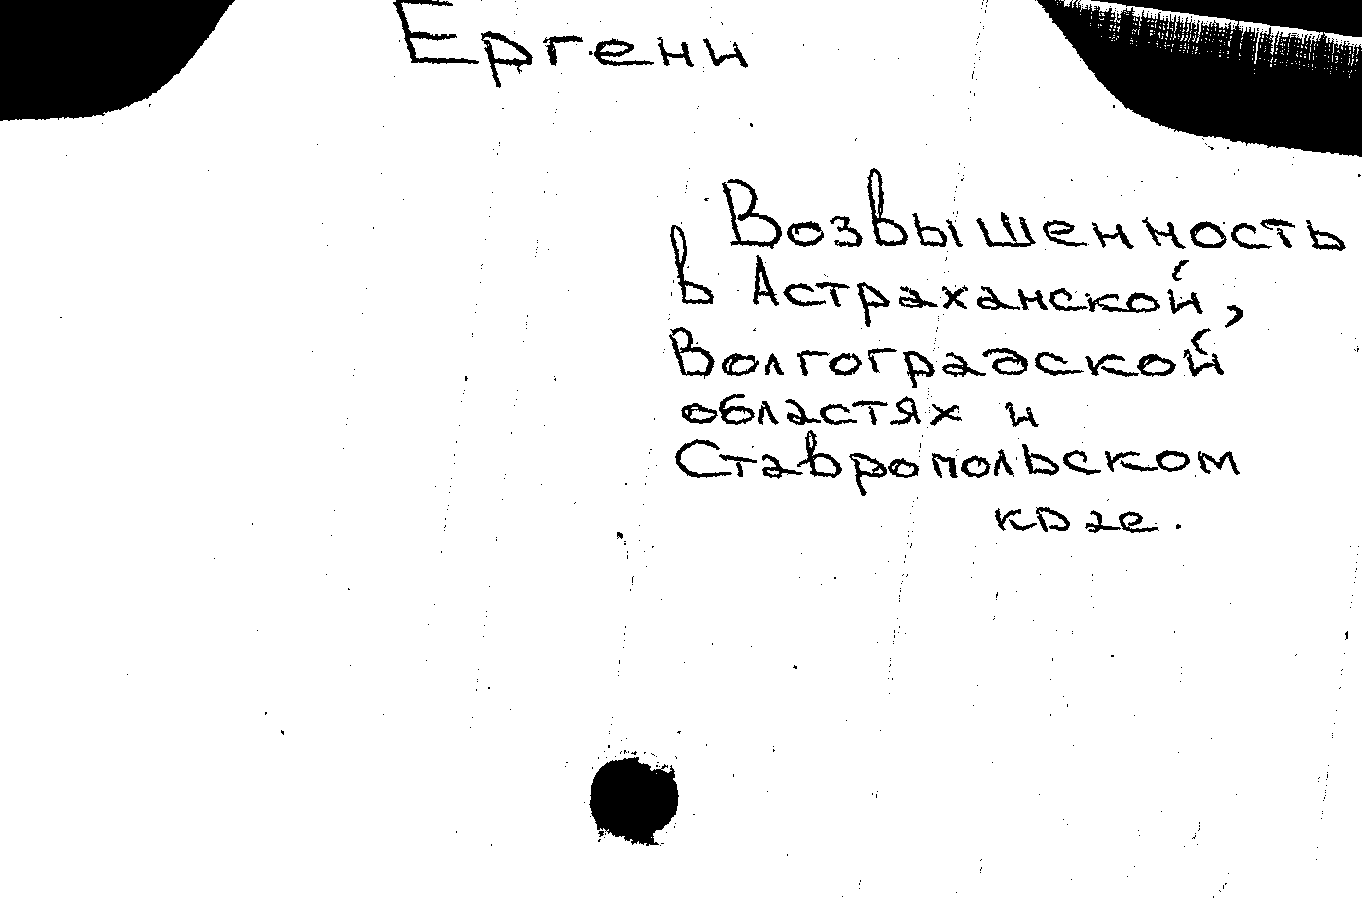 Ергени
Возвышенность
в Астраханской,
Волгоградской
областях и
Ставропольском
крае.